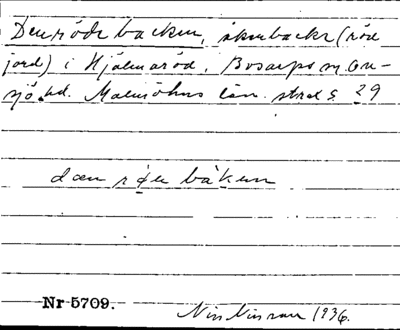 Denröde backen, skurbacke (röd
jord) i Hjälmaröd, Bosarps sn. On-
sjö hd. Malmöhus län. stred S. 29
dæn røu bakun
Nr 5709.
Nils Nilsson 1936.